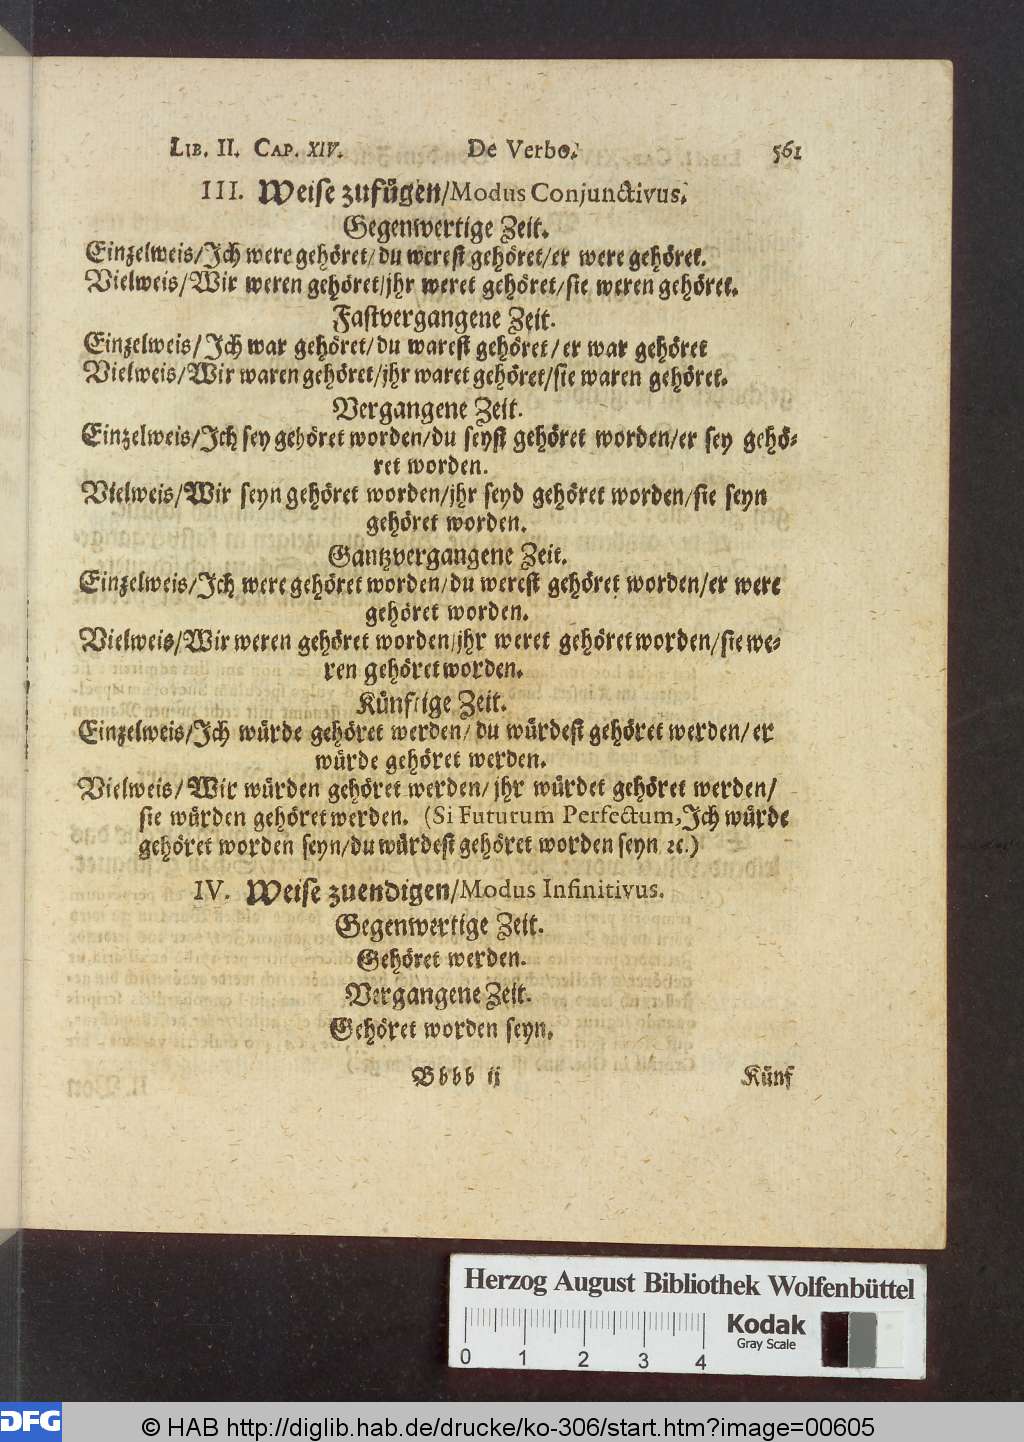 LIB. II. CAP. XIV. De Verbo. 561
III. Weise zufügen/Modus Conjunctivus.
Gegenwertige Zeit.
Einzelweis/Ich were gehöret/du werest gehöret/er were gehöret.
Vielweis/Wir weren gehöret/jhr weret gehöret/sie weren gehöret.
Fastvergangene Zeit.
Einzelweis/Ich war gehöret/du warest gehöret/er war gehöret
Vielweis/Wir waren gehöret/jhr waret gehöret/sie waren gehöret.
Vergangene Zeit.
Einzelweis/Ich sey gehöret worden/du seyst gehöret worden/er sey gehö-
ret worden.
Vielweis/Wir seyn gehöret worden/jhr seyd gehöret worden/sie seyn
gehöret worden.
Gantzvergangene Zeit.
Einzelweis/Ich were gehöret worden/du werest gehöret worden/er were
gehöret worden.
Vielweis/Wir weren gehöret worden/jhr weret gehöret worden/sie we-
ren gehöret worden.
Künftige Zeit.
Einzelweis/Ich würde gehöret werden/du würdest gehöret werden/er
würde gehöret werden.
Vielweis/Wir würden gehöret werden/jhr würdet gehöret werden/
sie würden gehöret werden. (Si Futurum Perfectum, Ich würde
gehöret worden seyn/du würdest gehöret worden seyn ꝛc.)
IV. Weise zuendigen/Modus Infinitivus.
Gegenwertige Zeit.
Gehöret werden.
Vergangene Zeit.
Gehöret worden seyn.
Bbbb ij Künf
Herzog August Bibliothek Wolfenbüttel
0 1 2 3 4
Kodak
Gray Scale
DFG © HAB http://diglib.hab.de/drucke/ko-306/start.htm?image=00605